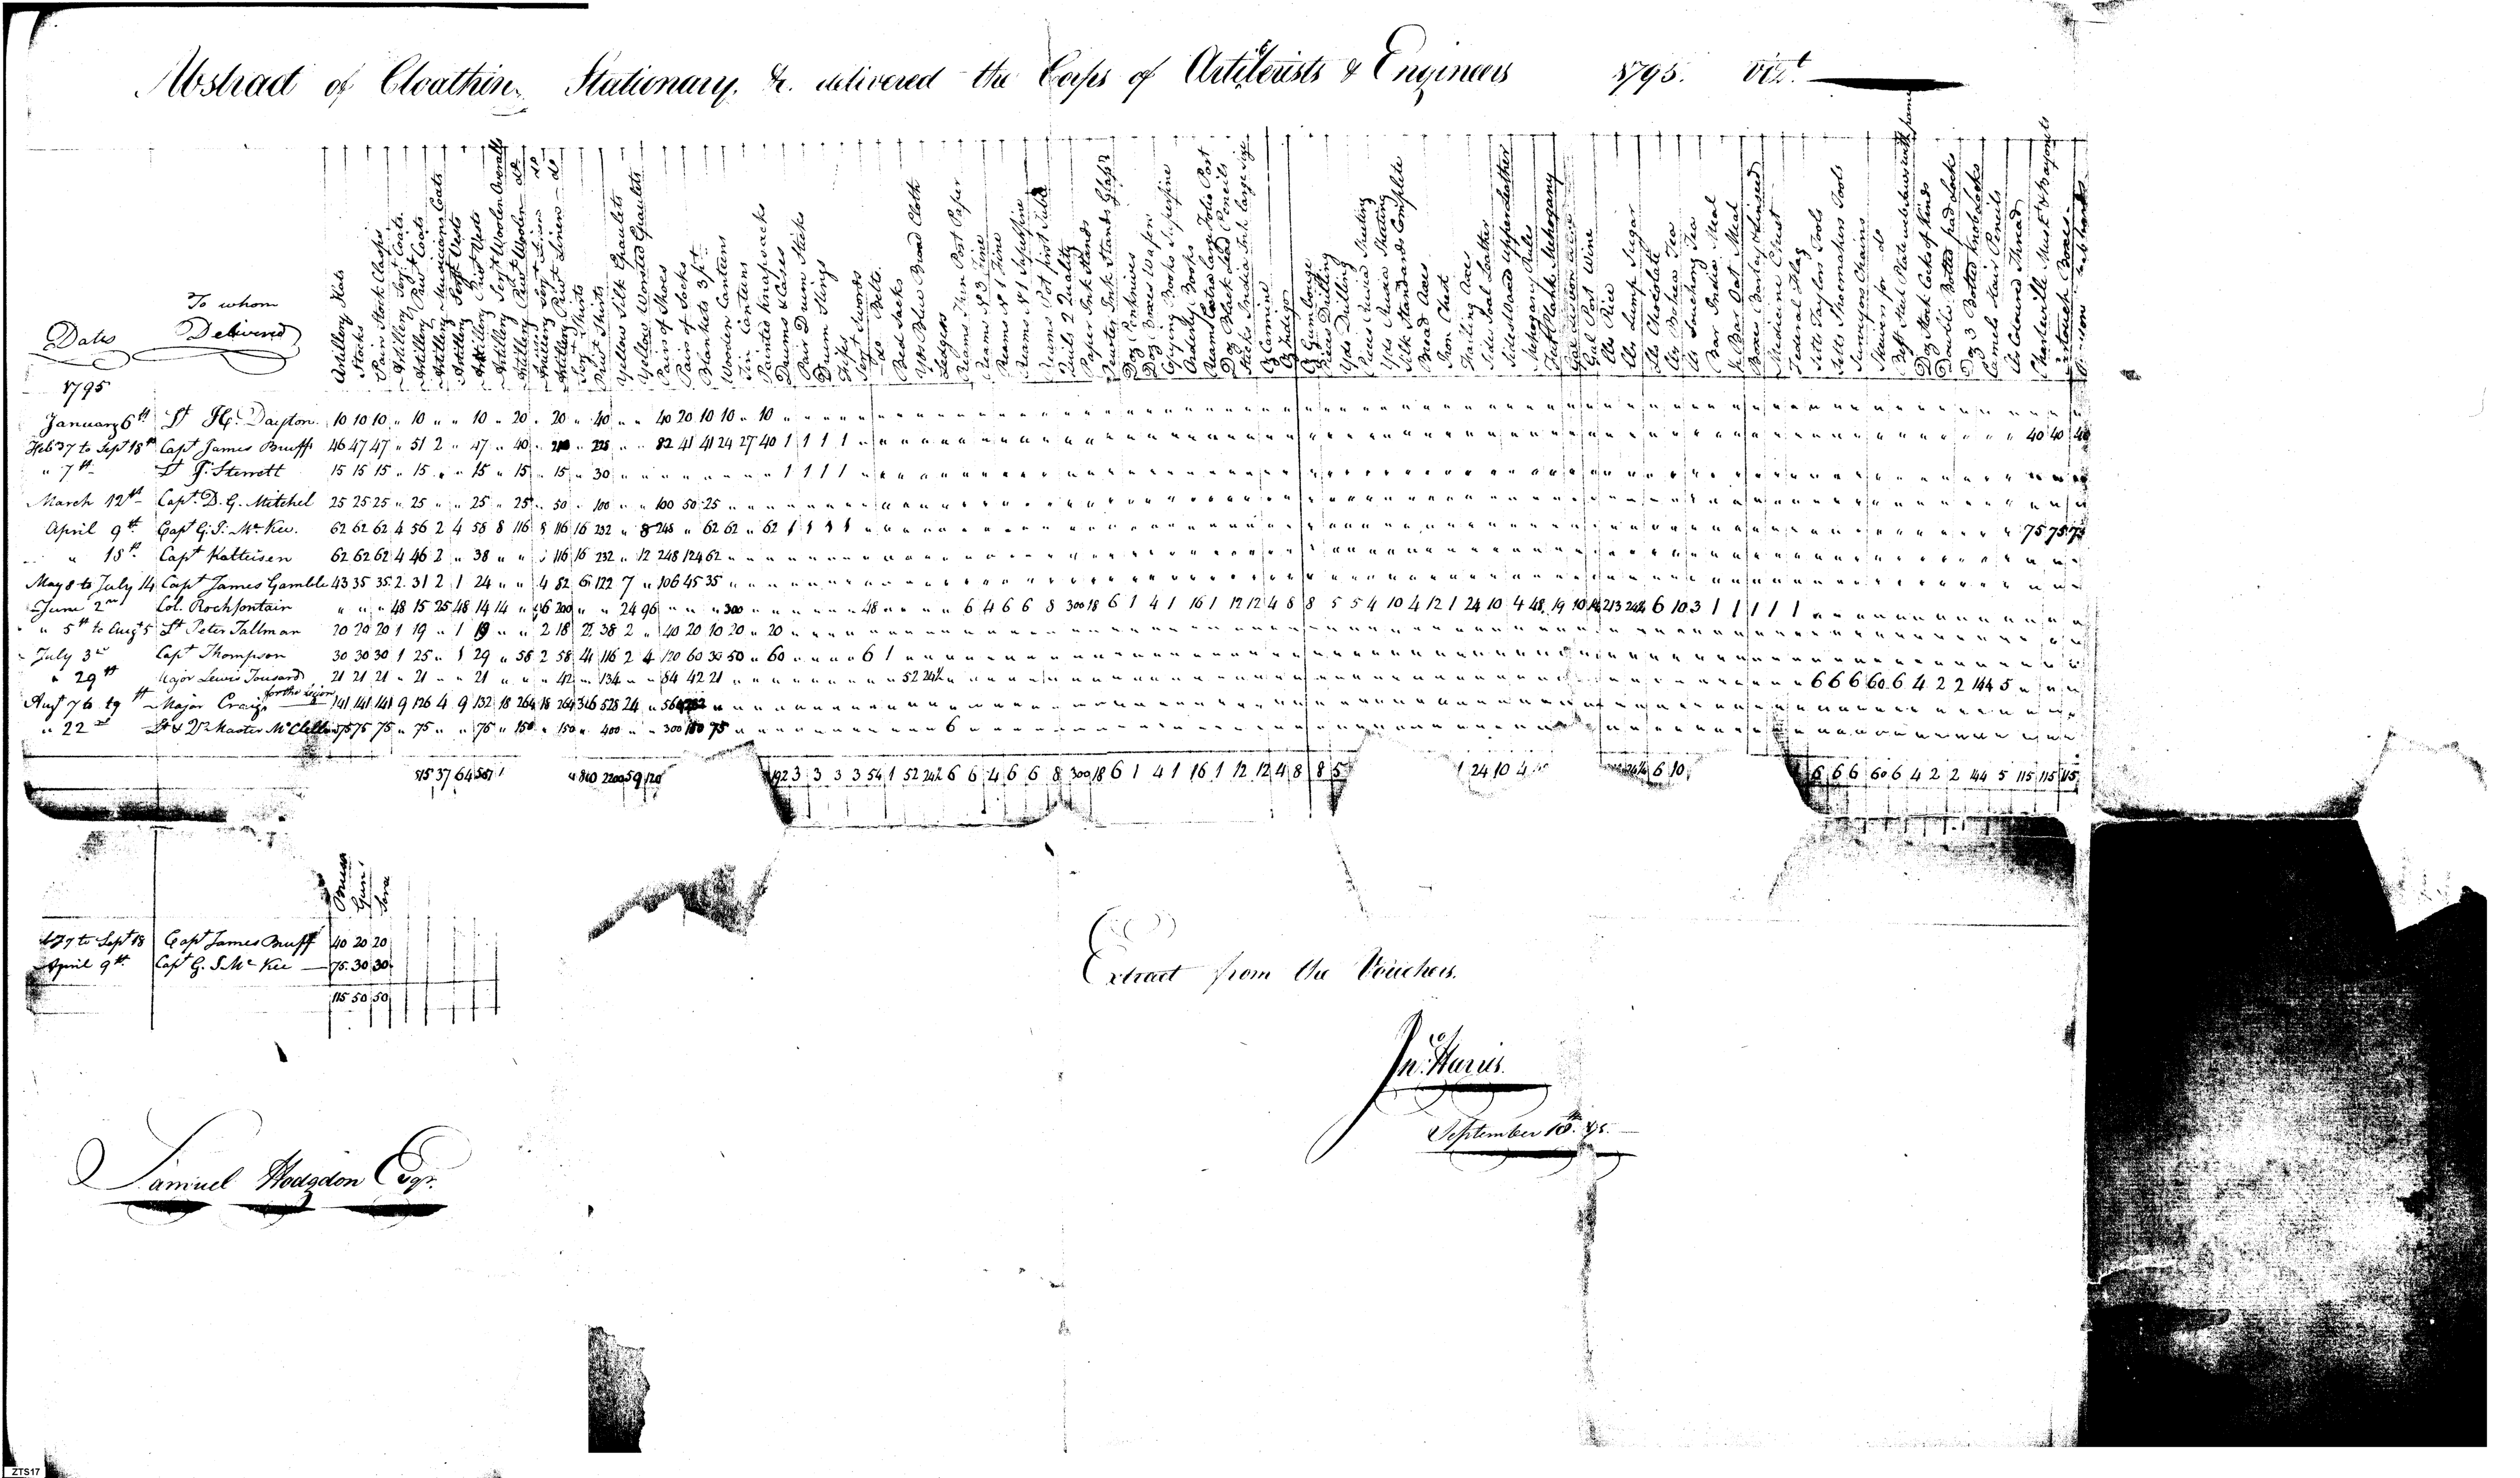 Abstract of Cloathing Stationary, &c. delivered the Corps of Artillerists & Engineers 1795. Vizt.
Dates
To whom Delivered
Artillery Hats
Stocks
Pairs Stock Clasps
Artillery Sergt Coats
Artillery Privt Coats
Artillery Musicians Coats
Artillery Sergt Vests
Artillery Privt Vests
Artillery Sergt Woolen Overalls
Artillery Privt Woolen do
Artillery Sergt Linen do
Artillery Privt Linen do
Sergt Shirts
Privt Shirts
Yellow Silk Epaulets
Yellow Worsted Epaulets
Pairs of Shoes
Pairs of Socks
Blankets 3 pt
Wooden Canteens
Tin Canteens
Painted Knapsacks
Drums & Cases
Pair Drum Sticks
Drum Slings
Fifes
Sergt Swords
do Belts
Bed Sacks
Yds Blue Broad Cloth
Ledgers
Reams Thin Post Paper
Reams No 3 Fine
Reams No 1 Fine
Reams No 1 Superfine
Reams Pot first
Quils 2 Quality
Paper Ink Stands
Pewter Ink Stands Glass
Doz Penknives
Doz Boxes Wafers
Cyping Books Superfine
Orderly Books
Reams Extra large Folio Post
Doz Black Lead Pencils
Sticks India Ink large size
Oz Carmine
Oz Indigo
Oz Gumboge
Pieces Drilling
Yds Drilling
Pieces Russia Sheeting
Yds Russia Sheeting
Silk Standards Complete
Broad Axes
Iron Chest
Falling Axes
Sides Soal Leather
Sides Waxd Upper Leather
Mehogany Rules
Feet Plank Mehogany
Gal Port Wine
lbs Rice
lbs Lump Sugar
lbs Chocolate
lbs Bohea Tea
lbs Souchong Tea
Bar Indian Meal
Bar Oat Meal
Boxes Barley & Linseed
Medicine Chest
Federal Flag
Setts Taylors Tools
Setts Shoemakers Tools
Surveyors Chains
Skewers for do
Doz Stock Locks of Kinds
Double Bolted pad Locks
Doz 3 Bolted Knob Locks
Camels Hair Pencils
lbs Coloured Thread
Charleville Muskts & Bayonets
Cartouch Boxes
1795
January 6th Lt H. Dayton 10 10 10 " 10 " " 10 " 20 " 20 " 40 " " 40 20 10 10 " 10
Feb 7 to Sept 18th Capt James Bruff 46 47 47 " 51 2 " 47 " 40 " " " 82 41 41 24 27 40 1 1 1 1 40 40 40
" 7th Lt J. Sterrett 15 15 15 " 15 " " 15 " 15 " 15 " 30 1 1 1 1
March 12th Capt. D. G. Mitchel 25 25 25 " 25 " " 25 " 25 " 50 " 100 " " 100 50 25
April 9th Capt G. J. McKee. 62 62 62 4 56 2 4 56 8 116 8 116 16 232 " 8 248 " 62 62 " 62 1 1 1 1 75 75 75
" 18th Capt Kalteisen 62 62 62 4 46 2 " 38 " " 116 16 232 " 12 248 124 62
May 8 to July 14 Capt James Gamble 43 35 35 2 31 2 1 24 " " 4 82 6 122 7 " 106 45 35
June 2nd Col. Rochfontain " " " 48 15 25 48 14 14 " 96 200 " " 24 96 " " " 300 48 6 4 6 6 8 300 18 6 1 4 1 16 1 12 12 4 8 8 5 5 4 10 4 12 1 24 10 4 48 19 10 213 242 6 10 3 1 1 1 1 1
" 5th to Augt 5 Lt Peter Tallman 20 20 20 1 19 " 1 19 " " 2 18 2 38 2 " 40 20 10 20 " 20
July 3rd Capt Thompson 30 30 30 1 25 " 1 29 " 58 2 58 4 116 2 4 120 60 30 50 " 60 6 1
" 29th Major Lewis Tousard 21 21 21 " 21 " " 21 " " " 42 " 134 " " 84 42 21 52 242 6 6 6 60 6 4 2 2 144 5
Augt 7 to 19th Major Craig for the Legion 141 141 141 9 126 4 9 132 18 264 18 264 36 528 24 " 564
" 22nd Lt & Qr Master McClellan 75 75 75 " 75 " " 75 " 150 " 150 " 400 " " 300 150 75 6
515 37 64 567 2200 59 120 192 3 3 3 3 54 1 52 242 6 6 4 6 6 8 300 18 6 1 4 1 16 1 12 12 4 8 8 5 1 24 10 4 6 10 6 6 6 60 6 4 2 2 144 5 115 115 115
7 to Sept 18 Capt James Bruff 40 20 20
April 9th Capt G. J. McKee 75 30 30
115 50 50
Extract from the Vouchers.
Jno. Harris.
September 18th. 95.
Samuel Hodgdon Esqr.
ZTS17